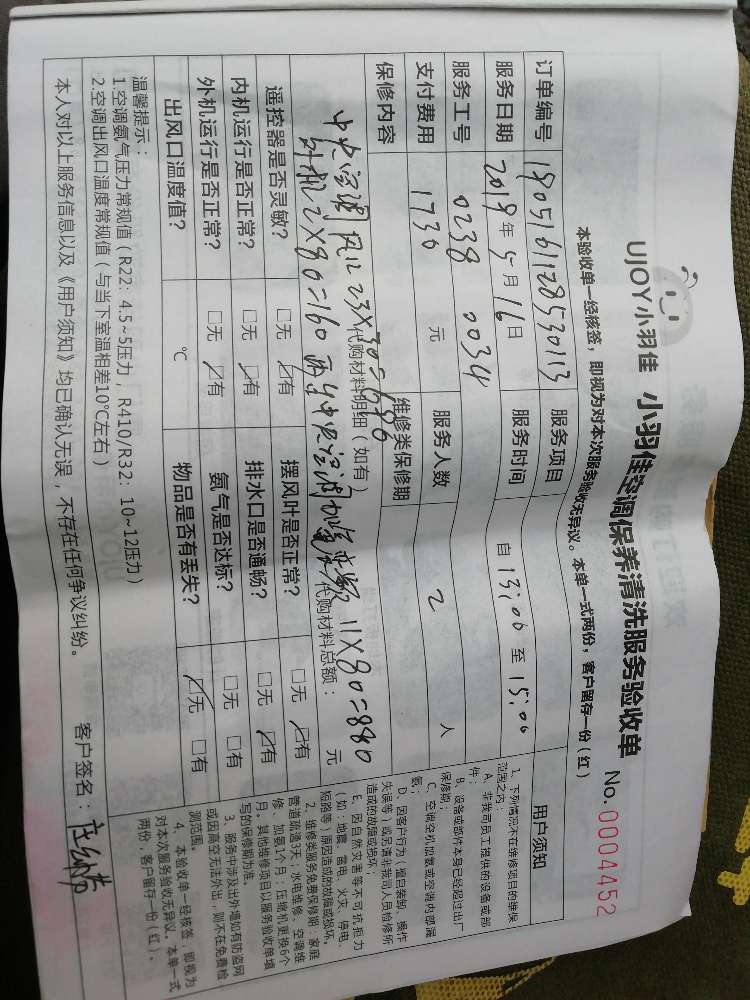 UJOY小羽佳 小羽佳空调保养清洗服务验收单 No.0004452
本验收单一经核签，即视为对本次服务验收无异议。本单一式两份，客户留存一份（红）
订单编号 1905161128530113 服务项目
服务日期 2019年5月16日 服务时间 自 13:00 至 15:00
服务工号 0238 0034
支付费用 1730 元 服务人数 2 人
保修内容 维修类保修期
代购材料明细（如有） 代购材料总额： 元
中央空调 风口23×30=690
外机2×80=160 11×80=880
遥控器是否灵敏？ □无 ☑有 摆风叶是否正常？ □无 ☑有
内机运行是否正常？ □无 ☑有 排水口是否通畅？ □无 ☑有
外机运行是否正常？ □无 ☑有 氨气是否达标？ □无 □有
出风口温度值？ ℃ 物品是否有丢失？ ☑无 □有
温馨提示：
1.空调氨气压力常规值（R22：4.5~5压力，R410/R32：10~12压力）
2.空调出风口温度常规值（与当下室温相差10℃左右）
本人对以上服务信息以及《用户须知》均已确认无误，不存在任何争议纠纷。 客户签名：
用户须知
1、下列情况不在维修项目的维保
范围之内：
A、非我司员工提供的设备或部
件；
B、设备或部件本身已经超过出厂
保修期；
C、空调空机加氨或空调内部漏
氨；
D、因客户行为（擅自装卸、操作
失误等）或另请非我司人员检修所
造成的故障或损坏；
E、因自然灾害等不可抗拒力
（如：地震、雷电、火灾、停电、
短路等）原因造成的故障或损坏。
2、维修类服务免费保修期：家庭
管道疏通3天；水电维修、空调维
修、加氨1个月；压缩机更换6个
月。其他维修项目以服务验收单填
写的保修期为准。
3、服务中涉及出外墙如有防盗网
或因高空无法外出，则不在免费检
测范围。
4、本验收单一经核签，即视为
对本次服务验收无异议。本单一式
两份，客户留存一份（红）。